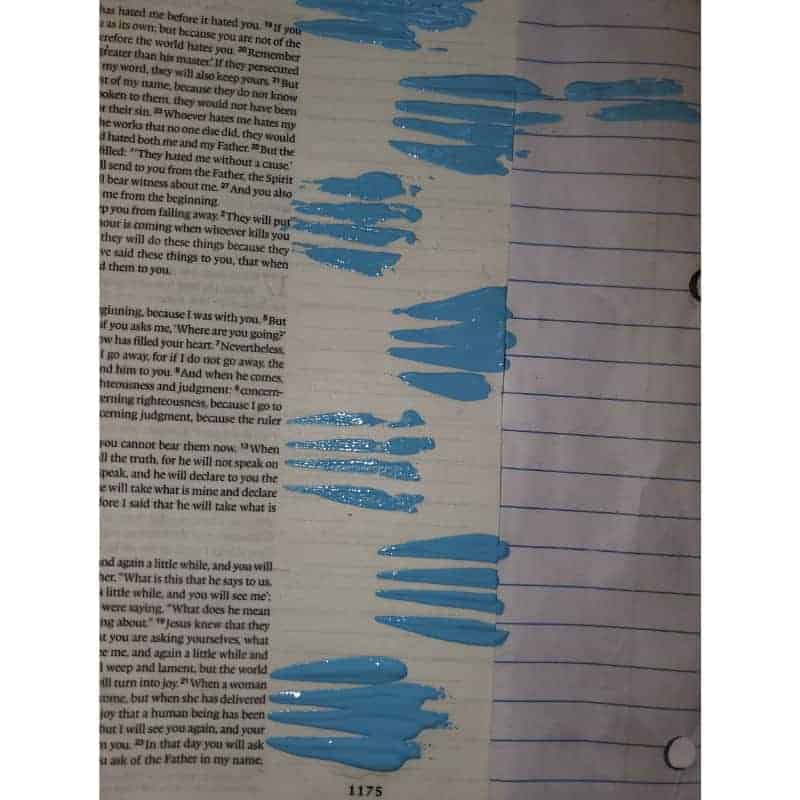 has hated me before it hated you. 19 If you
as its own; but because you are not of the
erefore the world hates you. 20 Remember
greater than his master.' If they persecuted
my word, they will also keep yours. 21 But
of my name, because they do not know
oken to them, they would not have been
r their sin. 23 Whoever hates me hates my
he works that no one else did, they would
hated both me and my Father. 25 But the
filled: 'They hated me without a cause.'
ll send to you from the Father, the Spirit
l bear witness about me. 27 And you also
me from the beginning.
p you from falling away. 2 They will put
our is coming when whoever kills you
they will do these things because they
ve said these things to you, that when
d them to you.
ginning, because I was with you. 5 But
f you asks me, 'Where are you going?'
ow has filled your heart. 7 Nevertheless,
I go away, for if I do not go away, the
nd him to you. 8 And when he comes,
hteousness and judgment: 9 concern-
erning righteousness, because I go to
cerning judgment, because the ruler
you cannot bear them now. 13 When
ll the truth, for he will not speak on
peak, and he will declare to you the
e will take what is mine and declare
fore I said that he will take what is
nd again a little while, and you will
her, "What is this that he says to us,
little while, and you will see me';
were saying, "What does he mean
ng about." 19 Jesus knew that they
t you are asking yourselves, what
e me, and again a little while and
l weep and lament, but the world
ill turn into joy. 21 When a woman
ome, but when she has delivered
joy that a human being has been
but I will see you again, and your
m you. 23 In that day you will ask
u ask of the Father in my name,
1175